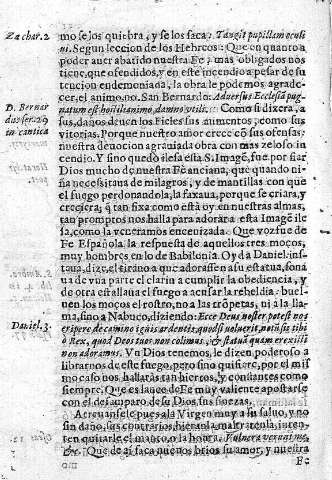 Zachar. 2
mo se los quiebra, y se los saca: Tangit pupillam oculi
mi. Segun leccion de los Hebreos: Que en quanto a
poder auer abatido nuestra Fe; mas obligados nos
tiene, que ofendidos, y en este incendio a pesar de su
tencion endemoniada, la obra le podemos agrade-
cer, el animo no. San Bernardo. Aduersus Ecclesiã pug
natum est hostili animo, damno vtili: Como si dixera, a
D. Bernar
dus ser. 29
in cantica
sus, daños deuen los Fieles sus aumentos, como sus
vitorias. Porque nuestro amor crece cõ sus ofensas:
nuestra deuocion agrauiada obra con mas zeloso in
cendio. Y sino quedò ilesa esta S. Imagẽ, fue por fiar
Dios mucho de nuestra Fè anciana, que quando ni-
ña necessitaua de milagros, y de mantillas con que
el fuego perdonandola, la faxaua, porque se criara, y
creciera, q̃ tan fixa como està oy en nuestras almas,
tan promptos nos halla para adorara esta Imagẽ ile
sa, como la veneramos encenizada. Que voz fue de
Fè Española, la respuesta de aquellos tres moços,
muy hombres en lo de Babilonia. Oyd a Daniel:
dize, el tirano a que adorassen a su estatua, sona
ua de vna parte el clarin a cumplir la obediencia, y
de otra estallaua el fuego a acusar la rebeldia: buel-
uen los moços el rostro, no a las trõpetas, ni a la lla-
ma, sino a Nabuco, diziendo: Ecce Deus noster potest nos
Daniel. 3.
eripere de camino ignis ardentis, quod si noluerit, notũ sit tibi
ò Rex, quod Deos tuos non colimus, & statuã quam erexisti
non adoramus. Vn Dios tenemos, le dizen poderoso a
librarnos de este fuego, pero sino quisiere, por el mis
mo caso nos hallaràs tan hieros, y constantes como
siempre. Que es lance de Fè muy valiente apostarse
con el desamparo de su Dios sus finezas.
Atreuansele pues a la Virgen muy a su saluo, y no
sin daño, sus contrarios, hieranla, maltratenla, inten-
ten quitarle el manto, o la honra. Vulnera
&c. Que de ai saca nueuos brios su amor, y nuestra
Fè